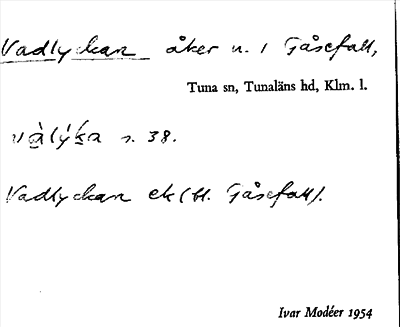 Vadlyckan åker n. 1 Gåsefall,
Tuna sn, Tunaläns hd, Klm. l.
s. 38.
Vadlyckan ek (bl. Gåsefall).
Ivar Modéer 1954